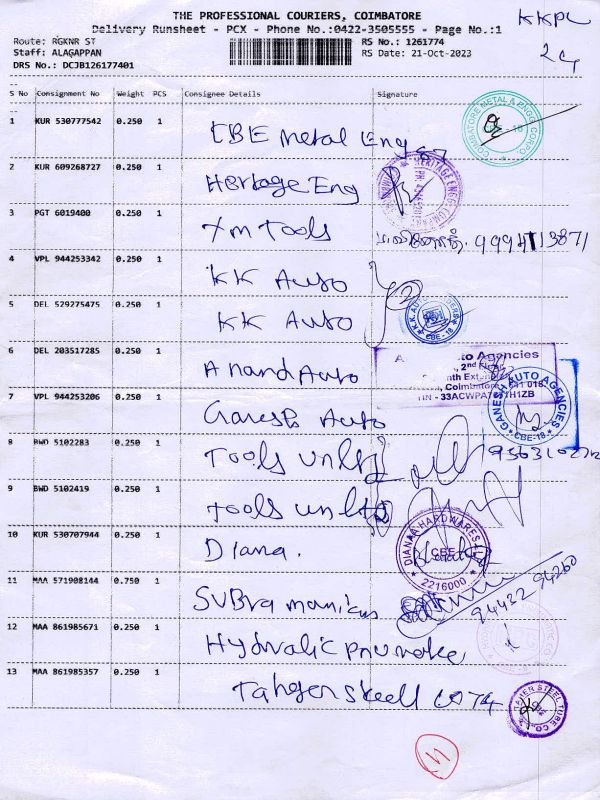 THE PROFESSIONAL COURIERS, COIMBATORE
Delivery Runsheet - PCX - Phone No.:0422-3505555 - Page No.:1
KKPL
Route: RGKNR ST
RS No.: 1261774
Staff: ALAGAPPAN
RS Date: 21-Oct-2023
DRS No.: DCJB126177401
S No Consignment No Weight PCS Consignee Details Signature
1 KUR 530777542 0.250 1 CBE Metal Eng
COIMBATORE METAL & ENGG. CORPO
2 KUR 609268727 0.250 1 Heritage Eng
HERITAGE ENGG COMPANY
3 PGT 6019400 0.250 1 Xm Tools
4 VPL 944253342 0.250 1 KK Auto
5 DEL 529275475 0.250 1 KK Auto
CBE-18
6 DEL 203517285 0.250 1 Anand Auto
to Agencies
2nd Floor
7 VPL 944253206 0.250 1 Ganesh Auto
GANESH AUTO AGENCIES
CBE-18
8 BWD 5102283 0.250 1 Tools
9 BWD 5102419 0.250 1 Tools
10 KUR 530707944 0.250 1 Diana.
DIANAA HARDWARES
CBE
2216000
11 MAA 571908144 0.750 1 Subramanian
94432 94260
12 MAA 861985671 0.250 1 Hydralic Pnumake
13 MAA 861985357 0.250 1
STEEL TUBE CO.
11